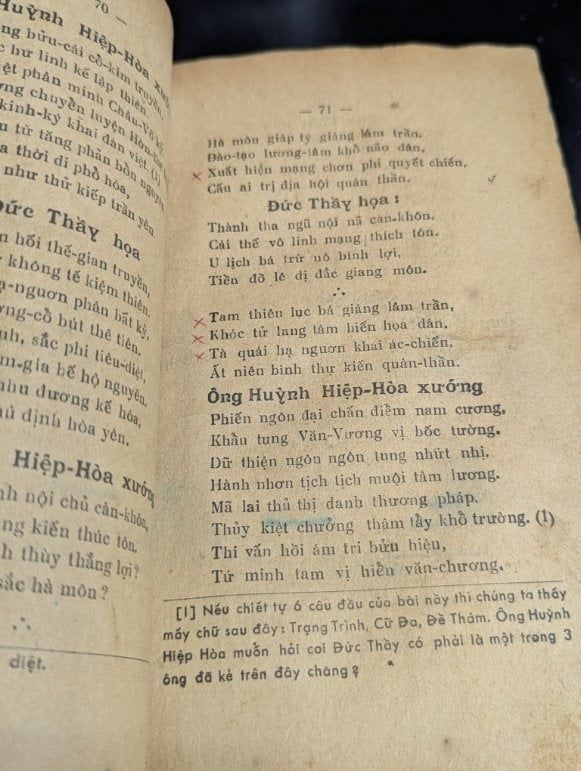 70 —
Huỳnh Hiệp-Hòa xướ
ng bửu-cái cồ-kim truyền,
c hư linh kế lập thiên.
ệt phân minh Châu-Võ
ng chuyền luyện Hớn
kinh-ký khai đàn việt, (1)
u từ tăng phản bồn nguyên
a thời di phố hóa,
như thử kiếp trần yên
Đức Thầy họa
n hồi thế-gian truyền,
không tế kiệm thiên,
ạ-nguơn phân bất kỳ,
ng-cồ bút thê tiên.
nh, sắc phi tiêu-diệt,
m-gia bế hộ nguyên.
nhu đương kế hóa,
ủ định hòa yên.
Hiệp-Hòa xướng
nh nội chủ càn-khôn,
ng kiến thúc tôn.
h thùy thắng lợi?
sắc hà môn?
diệt.
— 71 —
Hà môn giáp tý giáng lâm trần,
Đào-tạo lương-tâm khổ não dân,
Xuất hiện mạng chơn phi quyết chiến,
Cầu ai trị địa hội quân thần.
Đức Thầy họa :
Thành tha ngũ nội nã càn-khôn.
Cái thế vô linh mạng thích tôn.
U lịch bá trừ nô binh lợi,
Tiền đồ lê dị dắc giang môn.
Tam thiên lục bá giáng lâm trần,
Khóc tử lang tâm biến họa dân,
Tà quái hạ nguơn khai ác-chiến,
Ất niên binh thự kiến quân-thần.
Ông Huỳnh Hiệp-Hòa xướng
Phiến ngôn đại chấn điềm nam cương,
Khẩu tụng Văn-Vương vị bốc tường.
Dữ thiện ngôn ngôn tung nhứt nhị,
Hành nhơn tịch tịch muội tâm lương.
Mã lai thủ thị danh thương pháp.
Thủy kiệt chưởng thâm tẩy khổ trường. (1)
Thi vấn hồi âm tri bửu hiệu,
Tứ minh tam vị hiền văn-chương.
[1] Nếu chiết tự ở câu đầu của bài này thì chúng ta thấy
mấy chữ sau đây : Trạng Trình, Cữ Đa, Đề Thám. Ông Huỳnh
Hiệp Hòa muốn hỏi coi Đức Thầy có phải là một trong 3
ông đã kể trên đây chăng ?